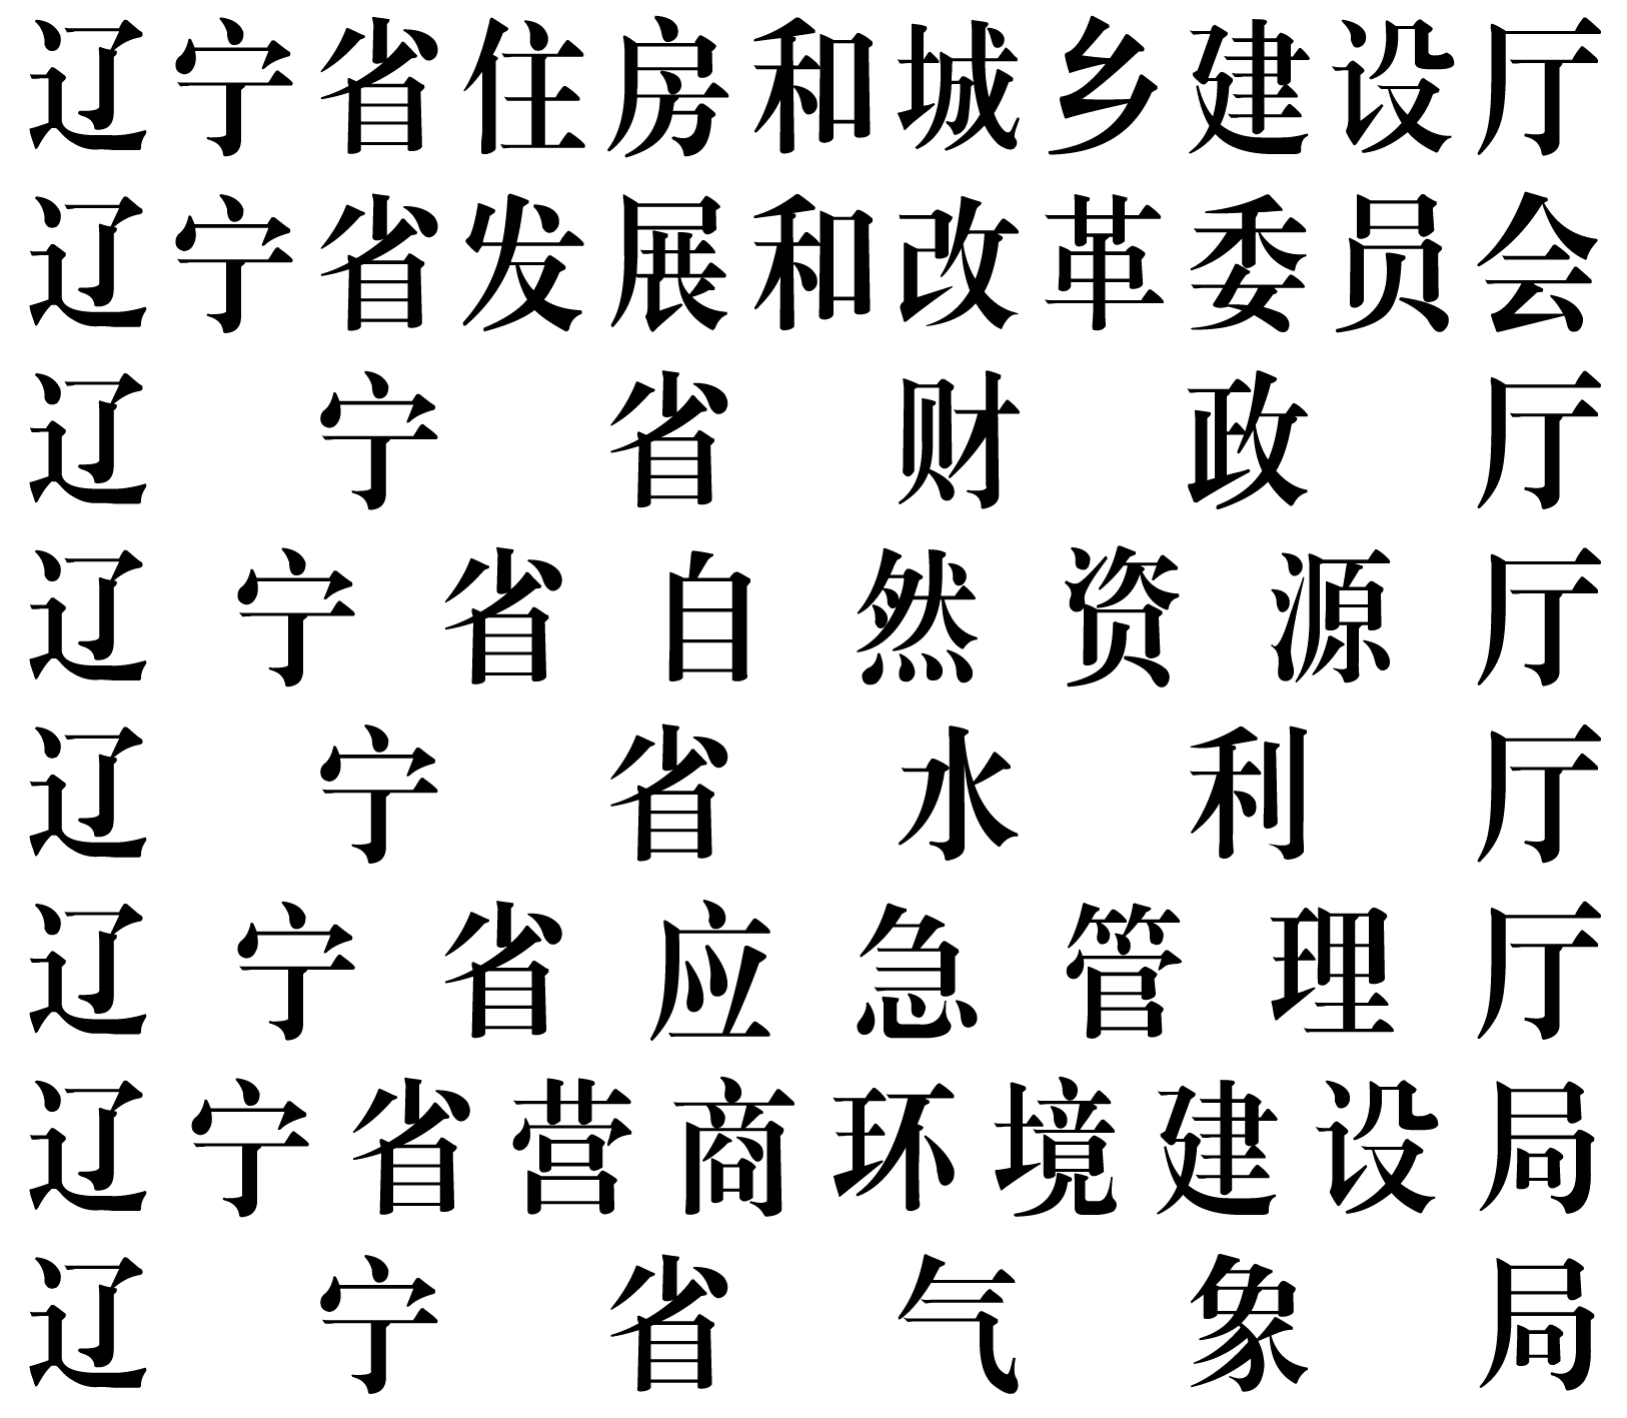 辽宁省住房和城乡建设厅
辽宁省发展和改革委员会
辽宁省财政厅
辽宁省自然资源厅
辽宁省水利厅
辽宁省应急管理厅
辽宁省营商环境建设局
辽宁省气象局